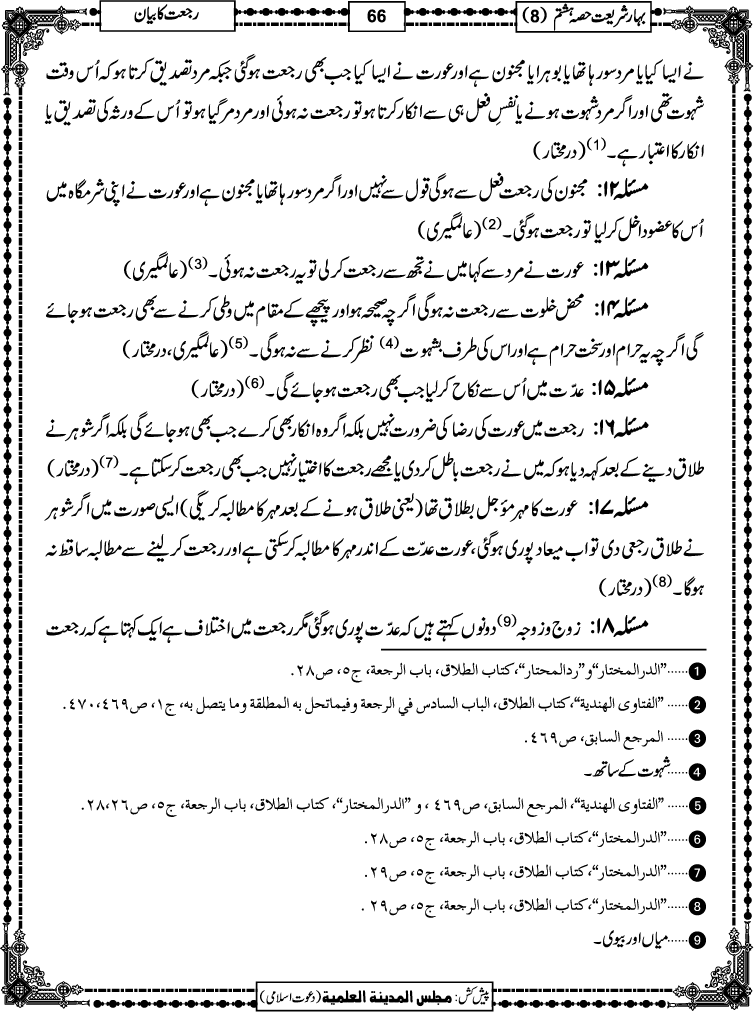 بہار شریعت حصہ ہشتم (8)
66
رجعت کا بیان
نے ایسا کیا یا مرد سو رہا تھا یا بوہرا یا مجنون ہے اور عورت نے ایسا کیا جب بھی رجعت ہوگئی جبکہ مرد تصدیق کرتا ہو کہ اُس وقت
شہوت تھی اور اگر مرد شہوت ہونے یا نفسِ فعل ہی سے انکار کرتا ہو تو رجعت نہ ہوئی اور مرد مر گیا ہو تو اُس کے ورثہ کی تصدیق یا
انکار کا اعتبار ہے۔(1) (درمختار)
مسئلہ ۱۲: مجنون کی رجعت فعل سے ہوگی قول سے نہیں اور اگر مرد سو رہا تھا یا مجنون ہے اور عورت نے اپنی شرمگاہ میں
اُس کا عضو داخل کر لیا تو رجعت ہوگئی۔(2) (عالمگیری)
مسئلہ ۱۳: عورت نے مرد سے کہا میں نے تجھ سے رجعت کر لی تو یہ رجعت نہ ہوئی۔(3) (عالمگیری)
مسئلہ ۱۴: محض خلوت سے رجعت نہ ہوگی اگرچہ صحیحہ ہو اور پیچھے کے مقام میں وطی کرنے سے بھی رجعت ہو جائے
گی اگرچہ یہ حرام اور سخت حرام ہے اور اس کی طرف بشہوت(4) نظر کرنے سے نہ ہوگی۔(5) (عالمگیری، درمختار)
مسئلہ ۱۵: عدّت میں اُس سے نکاح کر لیا جب بھی رجعت ہو جائے گی۔(6) (درمختار)
مسئلہ ۱۶: رجعت میں عورت کی رضا کی ضرورت نہیں بلکہ اگر وہ انکار بھی کرے جب بھی ہو جائے گی بلکہ اگر شوہر نے
طلاق دینے کے بعد کہہ دیا ہو کہ میں نے رجعت باطل کر دی یا مجھے رجعت کا اختیار نہیں جب بھی رجعت کر سکتا ہے۔(7) (درمختار)
مسئلہ ۱۷: عورت کا مہر مؤجل بطلاق تھا (یعنی طلاق ہونے کے بعد مہر کا مطالبہ کریگی) ایسی صورت میں اگر شوہر
نے طلاق رجعی دی تو اب میعاد پوری ہوگئی، عورت عدّت کے اندر مہر کا مطالبہ کر سکتی ہے اور رجعت کر لینے سے مطالبہ ساقط نہ
ہوگا۔(8) (درمختار)
مسئلہ ۱۸: زوج و زوجہ(9) دونوں کہتے ہیں کہ عدّت پوری ہوگئی مگر رجعت میں اختلاف ہے ایک کہتا ہے کہ رجعت
1......”الدرالمختار“و”ردالمحتار“، کتاب الطلاق، باب الرجعة، ج٥، ص٢٨.
2...... ”الفتاوى الهندية“، كتاب الطلاق، الباب السادس في الرجعة وفيماتحل به المطلقة وما يتصل به، ج١، ص٤٦٩،٤٧٠.
3...... المرجع السابق، ص٤٦٩.
4......شہوت کے ساتھ۔
5...... ”الفتاوى الهندية“، المرجع السابق، ص٤٦٩، و ”الدرالمختار“، كتاب الطلاق، باب الرجعة، ج٥، ص٢٦،٢٨.
6......”الدرالمختار“، كتاب الطلاق، باب الرجعة، ج٥، ص٢٨.
7......”الدرالمختار“، كتاب الطلاق، باب الرجعة، ج٥، ص٢٩.
8......”الدرالمختار“، كتاب الطلاق، باب الرجعة، ج٥، ص٢٩ .
9......میاں اور بیوی۔
پیش کش: مجلس المدينة العلمية (دعوت اسلامی)